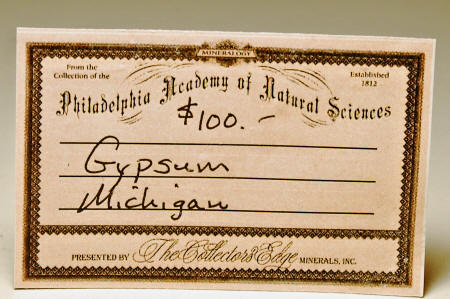 MINERALOGY
From the
Collection of the
Established
1812
Philadelphia Academy of Natural Sciences
$100.-
Gypsum
Michigan
PRESENTED BY The Collector's Edge MINERALS, INC.